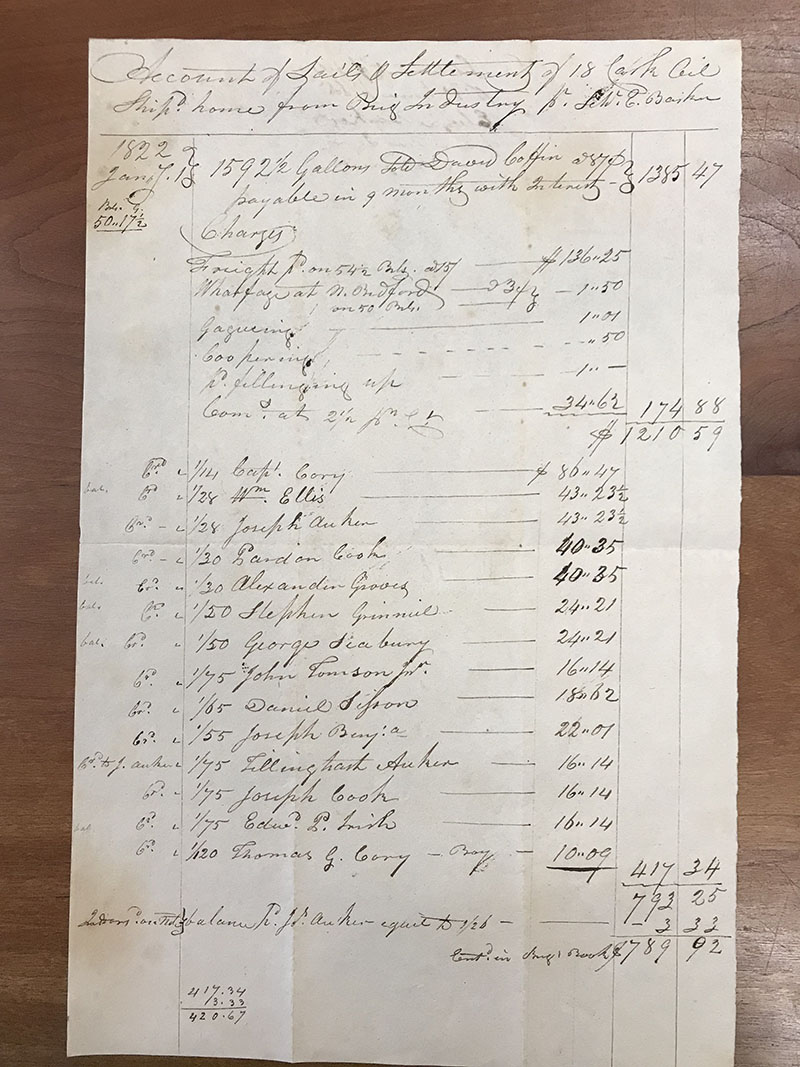 Account of Sails & Settlement of 18 Cask Oil
Ship.d home from Brig Industry pr. Schr. E. Barker
1822
Jany. 18 } 1592 1/2 Gallons Sold David Coffin a 87¢
payable in 9 months with Interest } 1385 47
Bls. G.
50..17 1/2
Charges
Freight pd. on 54 1/2 Bls. a $ 136..25
Wharfage at N. Bedford a 3¢ } 1..50
on 50 Bls.
Gagueing 1..01
Coopering ..50
pd. filling up 1..—
Coms. at 2 1/2 pr. Ct. 34..62 174 88
$ 1210 59
Crd. " 1/14 Capt. Cory $ 86..47
bal. Crd " 1/28 Wm. Ellis 43..23 1/2
Crd. — " 1/28 Joseph Auker 43..23 1/2
Crd. — " 1/30 Pardon Cook 40..35
bal. Cr. " 1/30 Alexander Groves 40..35
bal. Cr. " 1/50 Stephen Grinniel 24..21
bal. Crd. " 1/50 George Seabury 24..21
Crd. " 1/75 John Tomson Jnr. 16..14
Crd. " 1/65 Daniel Sisson 18..62
Crd. " 1/55 Joseph Benja 22..01
Crd. to J. auker " 1/75 Tillinghast Auker 16..14
Crd. " 1/75 Joseph Cook 16..14
bal Crd. " 1/75 Edwd. P. Irish 16..14
Crd. " 1/120 Thomas G. Cory — Boy — 10..09 417 34
793 25
balance pd. Js. Auker equel to 1/26 — 3 33
Entd. in Book $ 789 92
417.34
3.33
420.67